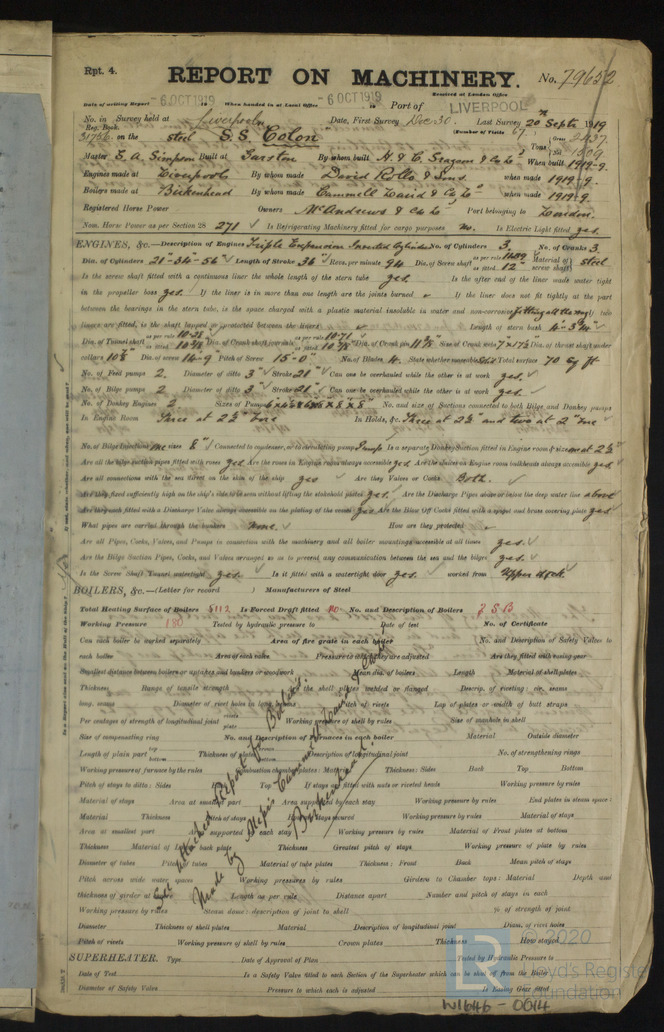 Rpt. 4.
REPORT ON MACHINERY. No. 79652
Received at London Office
Date of writing Report -6 OCT 1919 When handed in at Local Office -6 OCT 1919 Port of LIVERPOOL
No. in Survey held at Liverpool Date, First Survey Dec. 30. Last Survey 20th Sept. 1919
Reg. Book. (Number of Visits 67
31756 on the steel S.S. "Colon" Tons Gross 2437 Net
Master E. A. Simpson Built at Garston By whom built When built 1919-9.
Engines made at Liverpool By whom made David Rollo & Sons. when made 1919-9.
Boilers made at Birkenhead By whom made Cammell Laird & Co Ld when made 1919-9.
Registered Horse Power Owners McAndrews & Co Ld Port belonging to London.
Nom. Horse Power as per Section 28 271 Is Refrigerating Machinery fitted for cargo purposes No. Is Electric Light fitted yes.
ENGINES, &c.—Description of Engines Triple Expansion Inverted Cylinder No. of Cylinders 3 No. of Cranks 3
Dia. of Cylinders 21"-34"-56" Length of Stroke 36" Revs. per minute 94 Dia. of Screw shaft as per rule as fitted 12" Material of screw shaft steel
Is the screw shaft fitted with a continuous liner the whole length of the stern tube yes. Is the after end of the liner made water tight
in the propeller boss yes. If the liner is in more than one length are the joints burned If the liner does not fit tightly at the part
between the bearings in the stern tube, is the space charged with a plastic material insoluble in water and non-corrosive fitting all the way If two
liners are fitted, is the shaft lapped or protected between the liners Length of stern bush 4'-3¾"
Dia. of Tunnel shaft as per rule as fitted Dia. of Crank shaft journals as per rule 10.71 as fitted Dia. of Crank pin 11⅛" Size of Crank webs Dia. of thrust shaft under
collars Dia. of screw 14'-9" Pitch of Screw 15'-0" No. of Blades 4 State whether moveable Total surface 70 sq ft
No. of Feed pumps 2 Diameter of ditto 3" Stroke 21" Can one be overhauled while the other is at work yes.
No. of Bilge pumps 2 Diameter of ditto 3" Stroke 21" Can one be overhauled while the other is at work yes.
No. of Donkey Engines 2 Sizes of Pumps No. and size of Suctions connected to both Bilge and Donkey pumps
In Engine Room Three at 2½" one In Holds, &c. Three at 2½" and two at 2" one
No. of Bilge Injections one sizes Connected to condenser, or to circulating pump Pump Is a separate Donkey Suction fitted in Engine room & size one at 2½
Are all the bilge suction pipes fitted with roses yes Are the roses in Engine room always accessible yes Are the sluices on Engine room bulkheads always accessible yes
Are all connections with the sea direct on the skin of the ship yes Are they Valves or Cocks Both.
Are they fixed sufficiently high on the ship's side to be seen without lifting the stokehold plates yes. Are the Discharge Pipes above or below the deep water line above
Are they each fitted with a Discharge Valve always accessible on the plating of the vessel yes Are the Blow Off Cocks fitted with a spigot and brass covering plate yes
What pipes are carried through the bunkers None. How are they protected
Are all Pipes, Cocks, Valves, and Pumps in connection with the machinery and all boiler mountings accessible at all times yes.
Are the Bilge Suction Pipes, Cocks, and Valves arranged so as to prevent any communication between the sea and the bilges yes.
Is the Screw Shaft Tunnel watertight yes. Is it fitted with a watertight door yes. worked from Upper deck.
BOILERS, &c.—(Letter for record ) Manufacturers of Steel
Total Heating Surface of Boilers 5112 Is Forced Draft fitted no No. and Description of Boilers 2 S B
Working Pressure 180 Tested by hydraulic pressure to Date of test No. of Certificate
Can each boiler be worked separately Area of fire grate in each boiler No. and Description of Safety Valves to
each boiler Area of each valve Pressure to which they are adjusted Are they fitted with easing gear
Smallest distance between boilers or uptakes and bunkers or woodwork Mean dia. of boilers Length Material of shell plates
Thickness Range of tensile strength the shell plates welded or flanged Descrip. of riveting: cir. seams
long. seams Diameter of rivet holes in long. seams Pitch of rivets Lap of plates or width of butt straps
Per centages of strength of longitudinal joint Working pressure of shell by rules Size of manhole in shell
Size of compensating ring No. and Description of Furnaces in each boiler Material Outside diameter
Length of plain part top bottom Thickness of plates Description of longitudinal joint No. of strengthening rings
Working pressure of furnace by the rules Combustion chamber plates: Material Thickness: Sides Back Top Bottom
Pitch of stays to ditto: Sides Top If stays are fitted with nuts or riveted heads Working pressure by rules
Material of stays Area at smallest part Area supported by each stay Working pressure by rules End plates in steam space:
Material Thickness Pitch of stays How are stays secured Working pressure by rules Material of stays
Area at smallest part Area supported by each stay Working pressure by rules Material of Front plates at bottom
Thickness Material of Lower back plate Thickness Greatest pitch of stays Working pressure of plate by rules
Diameter of tubes Pitch of tubes Material of tube plates Thickness: Front Back Mean pitch of stays
Pitch across wide water spaces Working pressures by rules Girders to Chamber tops: Material Depth and
thickness of girder at centre Length as per rule Distance apart Number and pitch of stays in each
Working pressure by rules Steam dome: description of joint to shell % of strength of joint
Diameter Thickness of shell plates Material Description of longitudinal joint Diam. of rivet holes
Pitch of rivets Working pressure of shell by rules Crown plates Thickness How stayed
See attached Report for Boilers.
Made by Messrs Cammell Laird & Co Ld
Birkenhead.
SUPERHEATER. Type Date of Approval of Plan Tested by Hydraulic Pressure to
Date of Test Is a Safety Valve fitted to each Section of the Superheater which can be shut off from the Boiler
Diameter of Safety Valve Pressure to which each is adjusted Is Easing Gear fitted
© 2020
Lloyd's Register
Foundation
W1646-0614